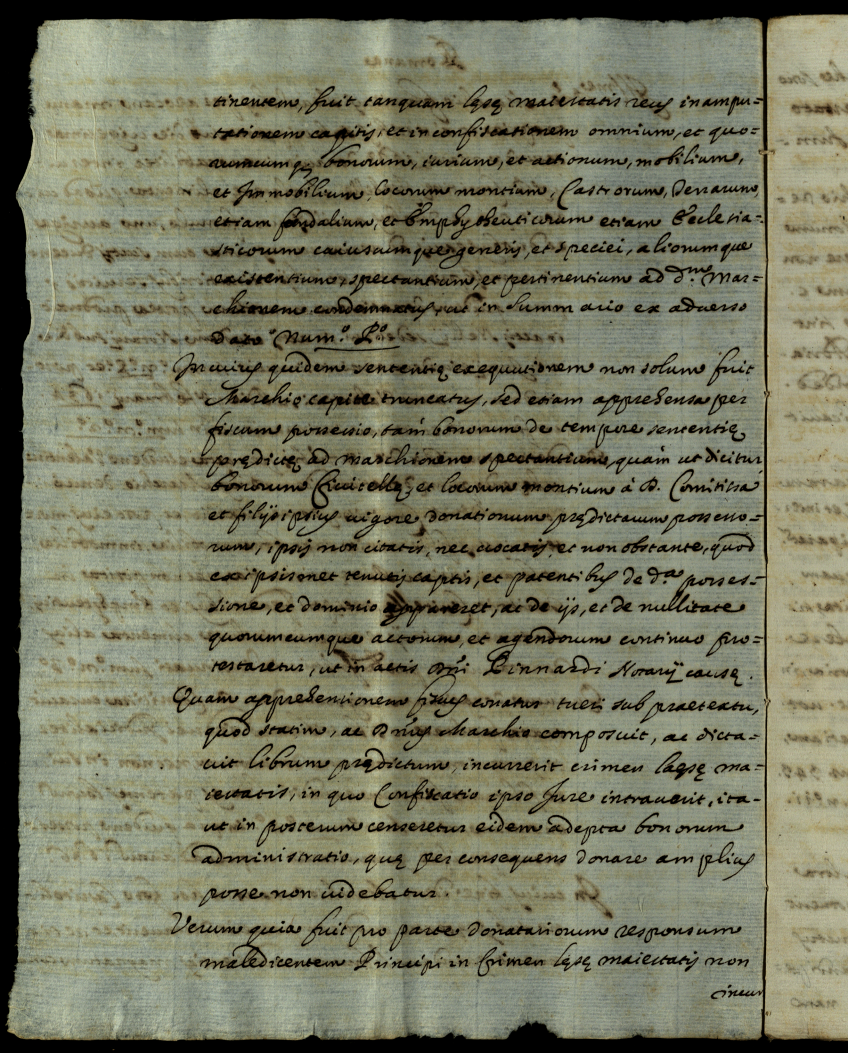 tinentem, fuit tanquam lęsę maiestatis reus in ampu=
tationem capitis, et in confiscationem omnium, et quo=
rumcumq; bonorum, iurium, et actionum, mobilium,
et Jmmobilium, locorum montium, Castrorum, Terrarum,
etiam feudalium, et Emphytheuticorum etiam Ecclesia=
sticorum cuiuscumque generis, et speciei, aliorumque
existentium, spectantium, et pertinentium ad d.um Mar=
chionem condemnatus, ut in Summario ex aduerso
dato Num.o P.o
In cuius quidem sententię exequutionem non solum fuit
Marchio capite truncatus, sed etiam apprehensa per
fiscum possessio, tam bonorum de tempore sententię
prędictę ad marchionem spectantium, quàm ut dicitur
bonorum Ciuitellę, et locorum montium à D. Comitissa
et filijs ipsius uigore donationum prędictarum possesso=
rum, ipsis non citatis, nec uocatis, et non obstante, quod
ex ipsismet tenutis captis, et patentibus de d.a posses=
sione, et dominio appareret, ac de ijs, et de nullitate
quorumcumque actorum, et agendorum continuo pro=
testaretur, ut in actis Dñi Pinnardi Notarij causę.
Quam apprehensionem fiscus conatur tueri sub praetextu,
quod statim, ac Dñus Marchio composuit, ac dicta=
uit librum prędictum, incurrerit crimen laęsę ma=
iestatis, in quo Confiscatio ipso Jure intrauerit, ita=
ut in posterum censeretur eidem adepta bonorum
administratio, quę per consequens donare amplius
posse non uidebatur.
Verum quia fuit pro parte donatariorum responsum
maledicentem Principi in Crimen lęsę maiestatis non
incur